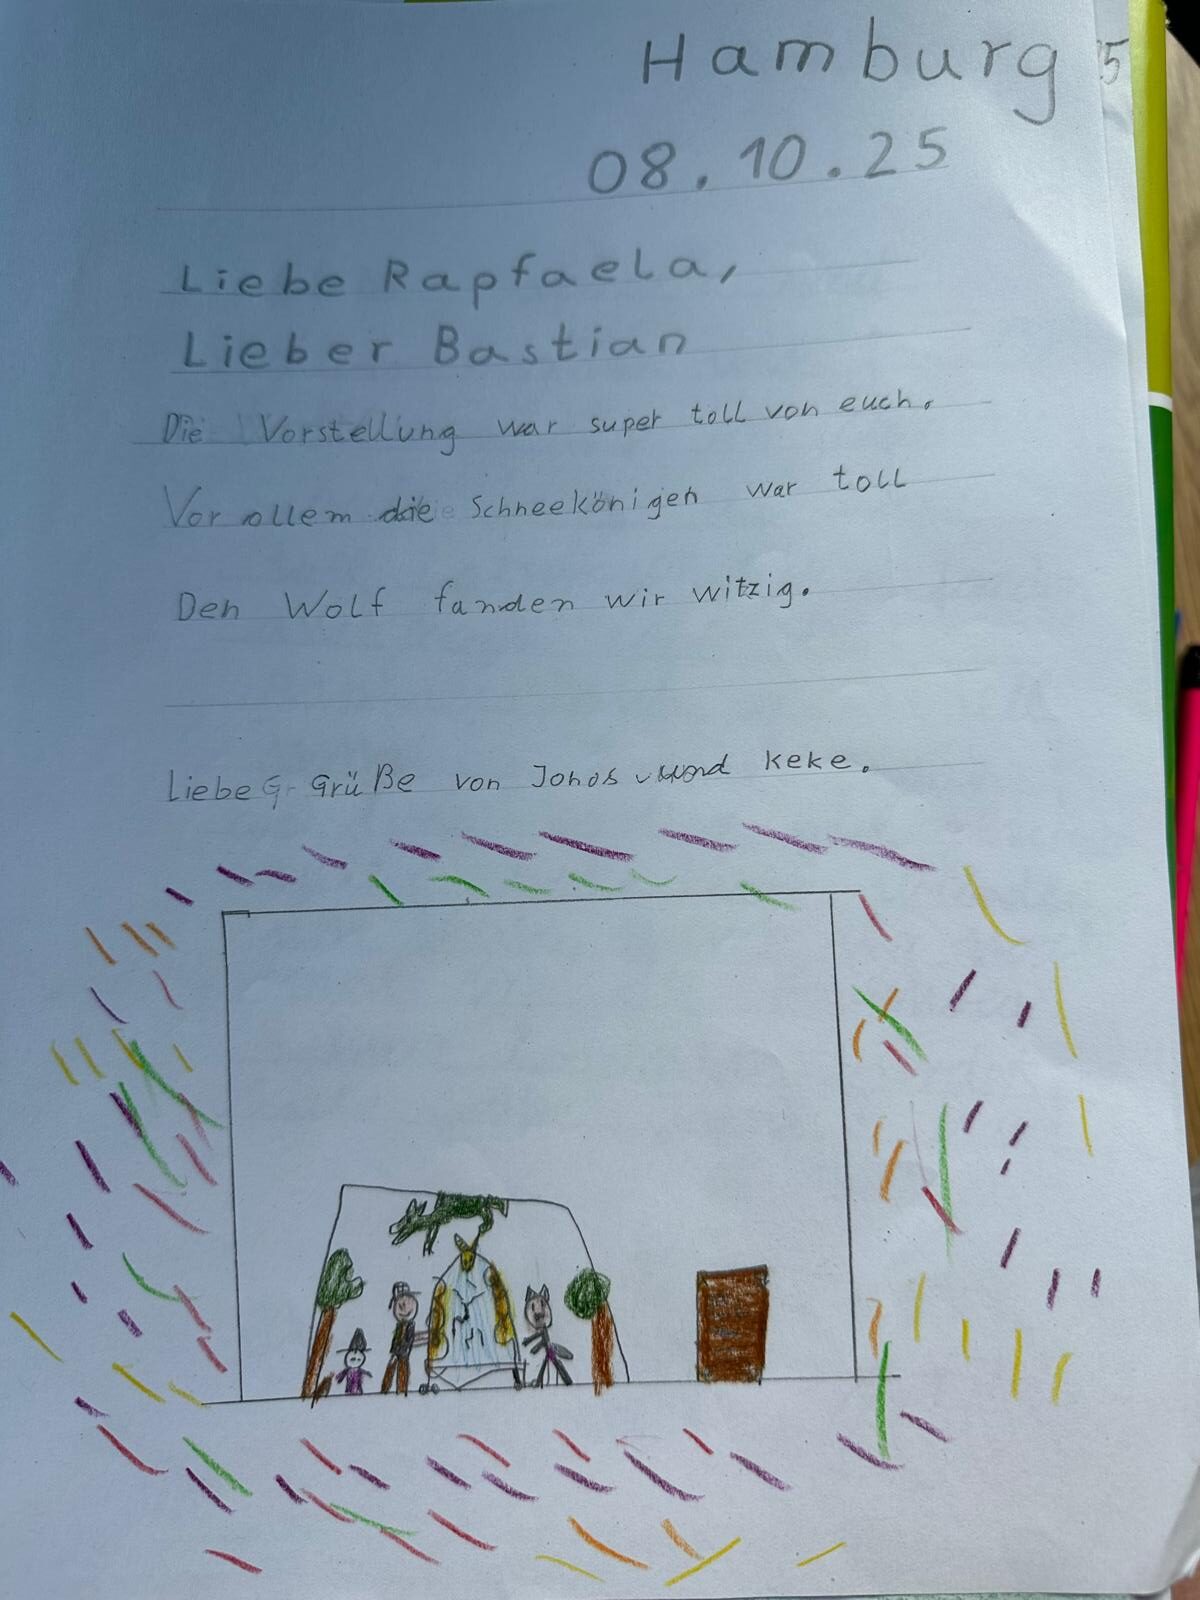 Hamburg
08.10.25
Liebe Rapfaela,
Lieber Bastian
Die Vorstellung war super toll von euch.
Vor ollem die Schneekönigen war toll
Den Wolf fanden wir witzig.
Liebe Grüße von Jonas und keke.